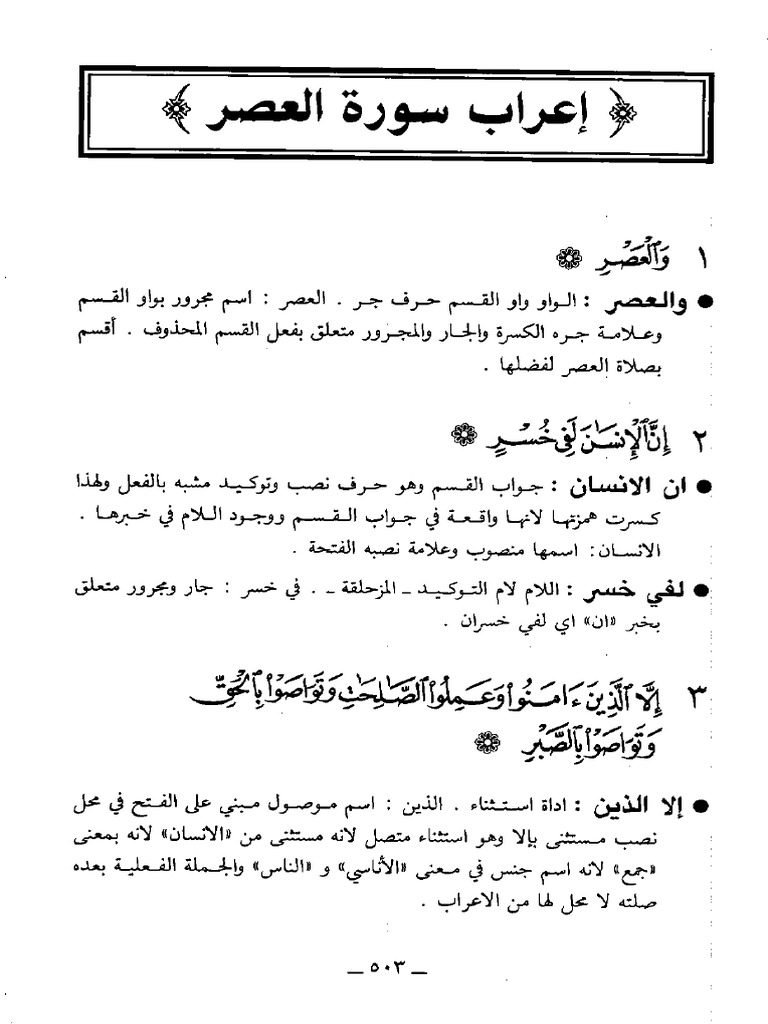 ﴿ إعراب سورة العصر ﴾
١ وَٱلْعَصْرِ
● والعصر : الواو واو القسم حرف جر . العصر : اسم مجرور بواو القسم
وعلامة جره الكسرة والجار والمجرور متعلق بفعل القسم المحذوف . أقسم
بصلاة العصر لفضلها .
٢ إِنَّ ٱلْإِنسَٰنَ لَفِى خُسْرٍ
● ان الانسان : جواب القسم وهو حرف نصب وتوكيد مشبه بالفعل ولهذا
كسرت همزتها لانها واقعة في جواب القسم ووجود اللام في خبرها .
الانسان: اسمها منصوب وعلامة نصبه الفتحة .
● لفي خسر : اللام لام التوكيد ـ المزحلقة ـ . في خسر : جار ومجرور متعلق
بخبر «ان» اي لفي خسران .
٣ إِلَّا ٱلَّذِينَ ءَامَنُوا۟ وَعَمِلُوا۟ ٱلصَّٰلِحَٰتِ وَتَوَاصَوْا۟ بِٱلْحَقِّ
وَتَوَاصَوْا۟ بِٱلصَّبْرِ
● إلا الذين : اداة استثناء . الذين : اسم موصول مبني على الفتح في محل
نصب مستثنى بإلا وهو استثناء متصل لانه مستثنى من «الانسان» لانه بمعنى
«جمع» لانه اسم جنس في معنى «الأناسي» و «الناس» والجملة الفعلية بعده
صلته لا محل لها من الاعراب .
ـ ٥٠٣ ـ